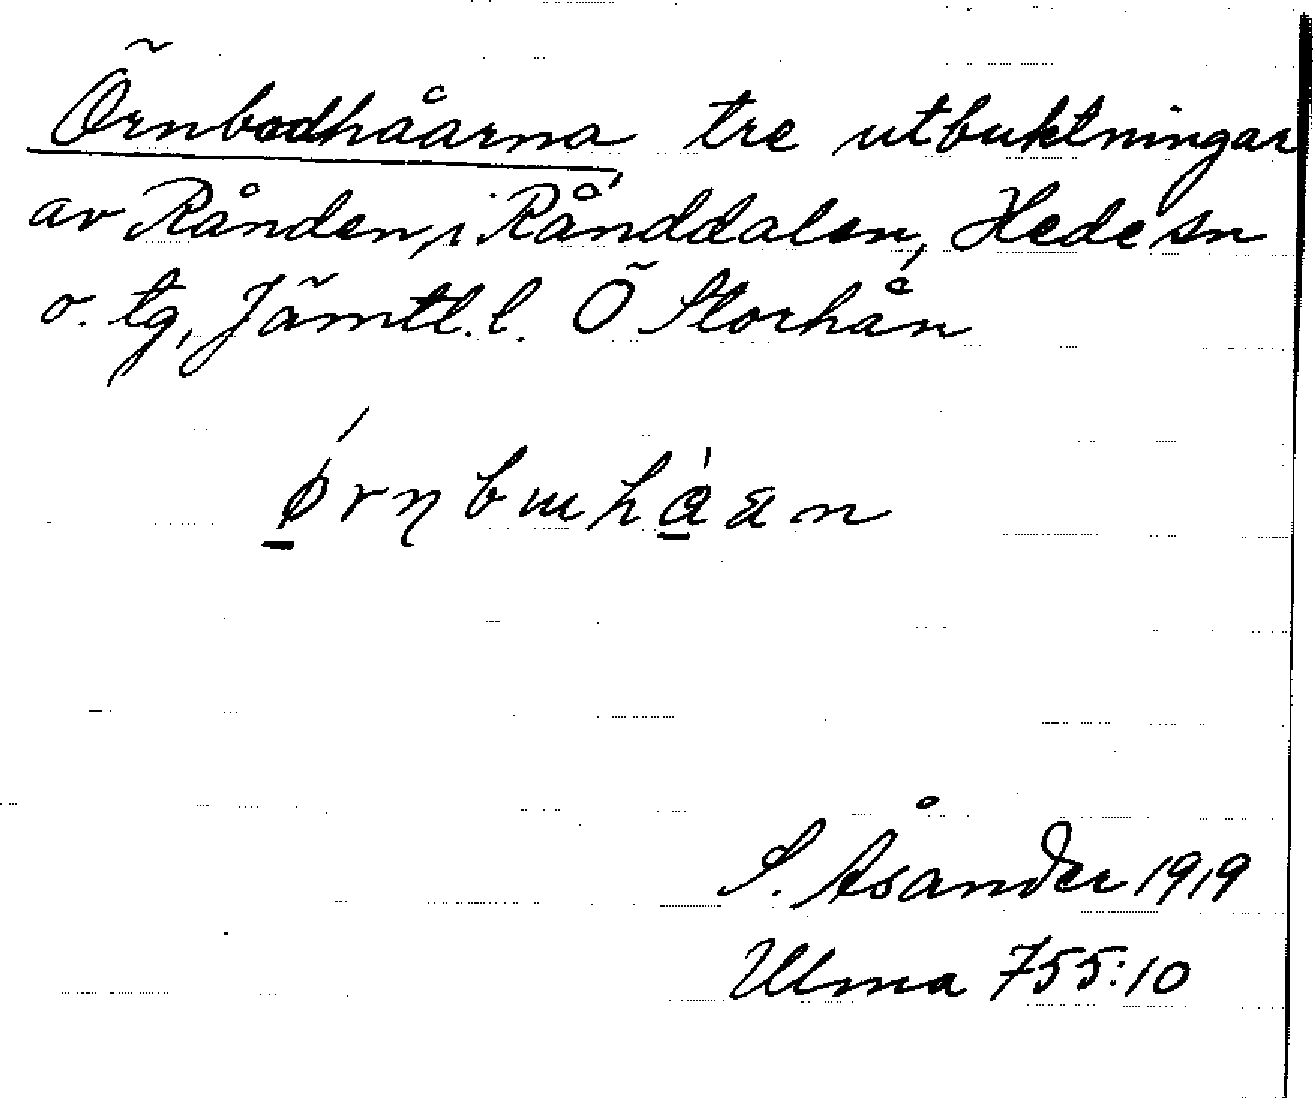 Örnbodhåarna tre utbuktningar
av Rånden, i Rånddalen, Hede sn
o. tg, Jämtl. l. Ö Storhån
S. Åsander 1919
Ulma 755:10